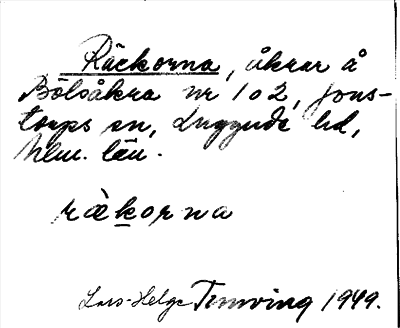 Räckorna, åkrar å
Bölsåkra nr 1 o 2, Jons-
torps sn, Luggude hd,
Mlm. län.
ràkorna
Lars-Helge Timving 1949.